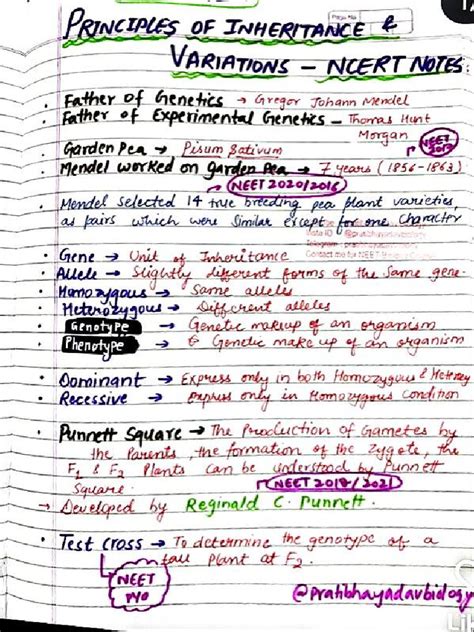 PRINCIPLES OF INHERITANCE &
VARIATIONS - NCERT NOTES:
• Father of Genetics → Gregor Johann Mendel
• Father of Experimental Genetics - Thomas Hunt
Morgan
NEET
• Garden Pea → Pisum Sativum
• Mendel worked on Garden Pea → 7 years (1856-1863)
NEET 2020/2016
• Mendel Selected 14 true breeding pea plant varieties,
as pairs which were Similar except for one Character
• Gene → Unit of Inheritance
• Allele → Slightly different forms of the Same gene
• Homozygous → Same alleles
• Heterozygous → Different alleles
• Genotype → Genetic makeup of an organism
• Phenotype → Genetic make up of an organism
• Dominant → Express only in both Homozygous &
• Recessive → Express only in Homozygous Condition
• Punnett Square → The Production of Gametes by
the Parents, the formation of the Zygote, the
F1 & F2 Plants can be understood by Punnett
Square.
NEET 2018/2021
→ Developed by Reginald C. Punnett.
• Test Cross → To determine the genotype of a
tall Plant at F2.
NEET
PYQ
@pratibhayadavbiology